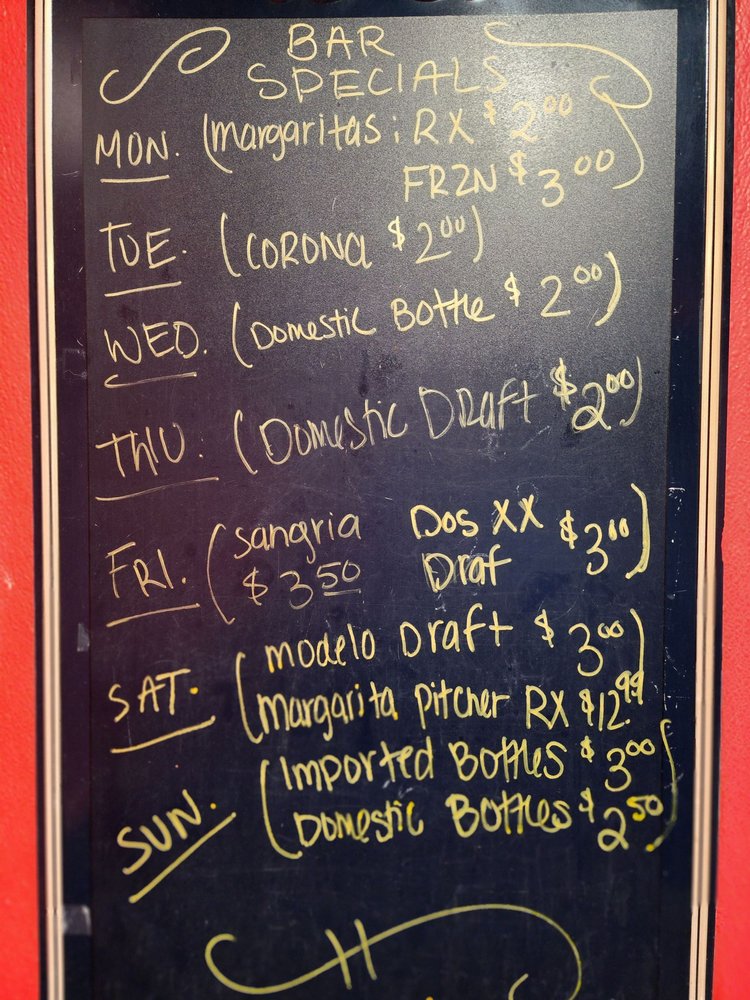 BAR
SPECIALS
MON. (margaritas: RX $2.00
FRZN $3.00)
TUE. (CORONA $2.00)
WED. (Domestic Bottle $2.00)
THU. (Domestic Draft $2.00)
FRI. (sangria Dos XX $3.00)
$3.50 Draf
SAT. (modelo Draft $3.00
margarita pitcher RX $12.99)
SUN. (Imported Bottles $3.00
Domestic Bottles $2.50)